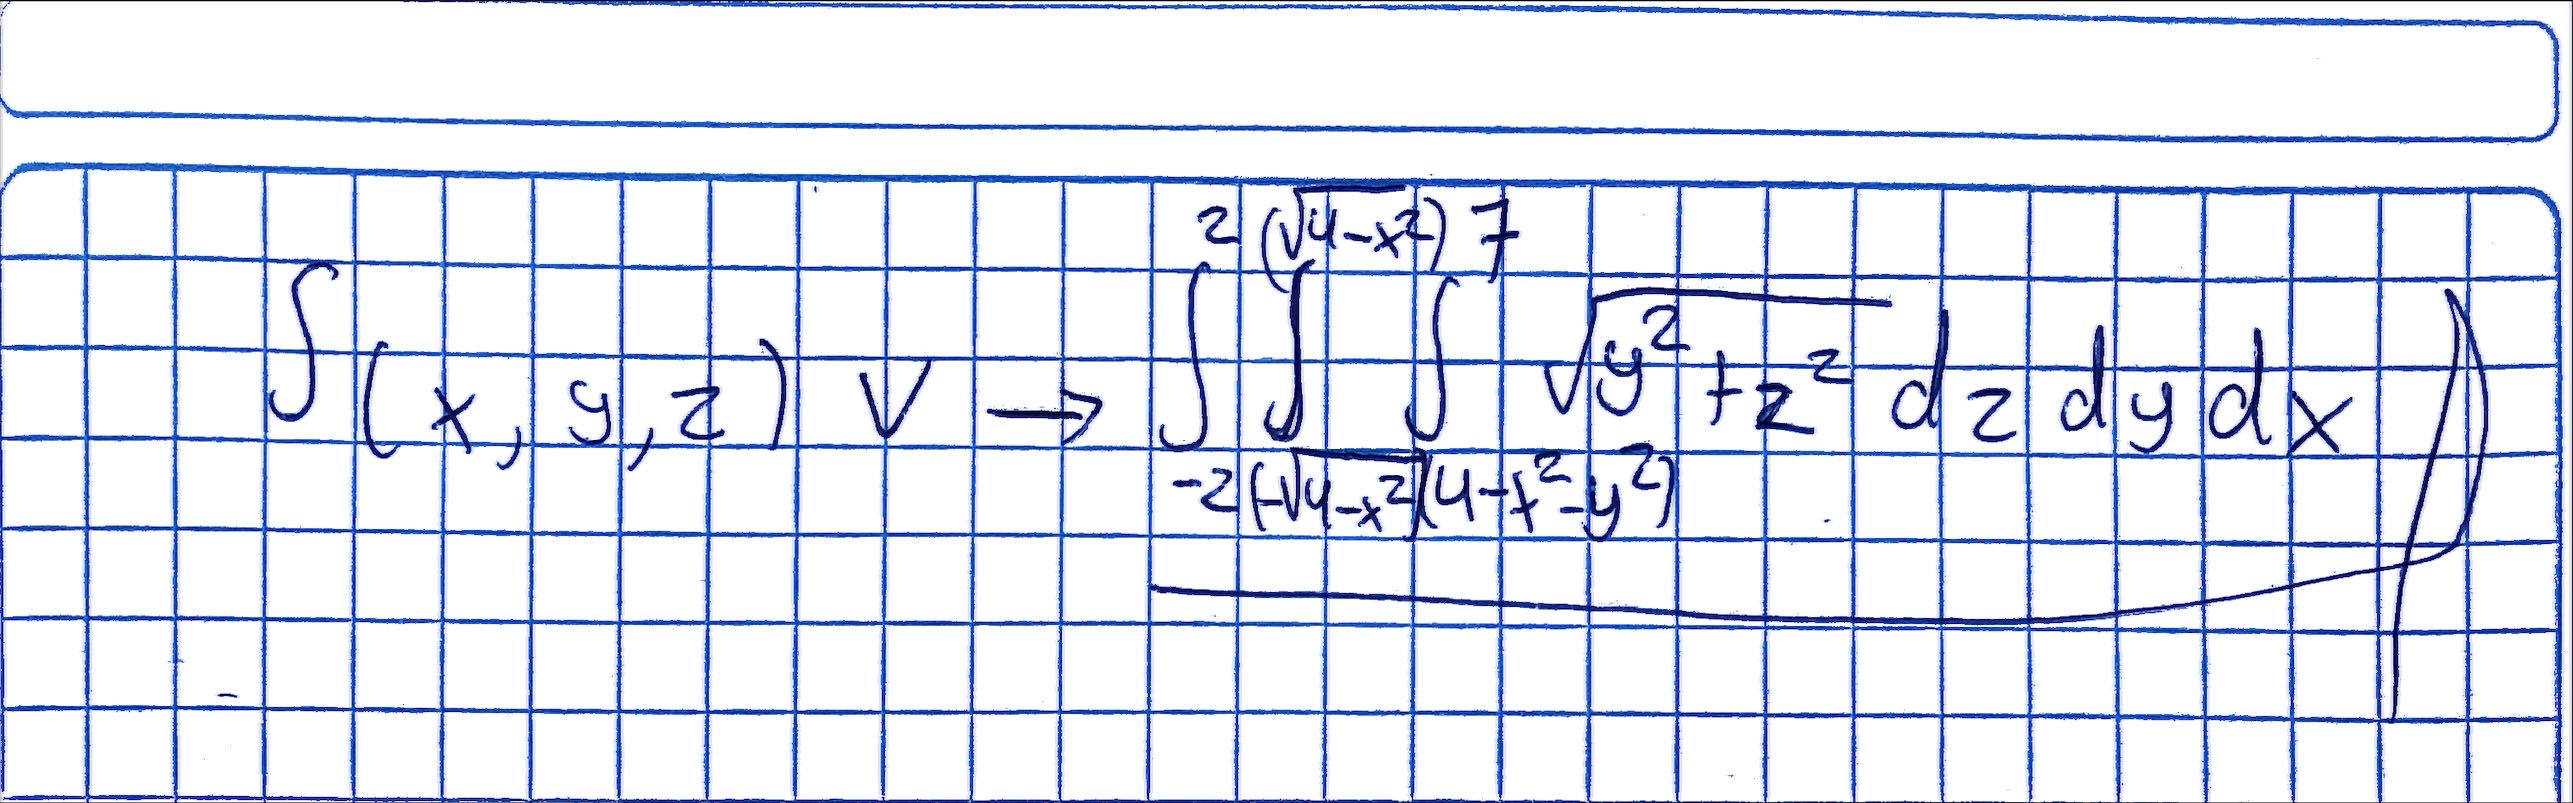 ∫(x, y, z) V → ∫_{-2}^{2} ∫_{(-√(4-x²))}^{(√(4-x²))} ∫_{(4-x²-y²)}^{7} √(y²+z²) dz dy dx